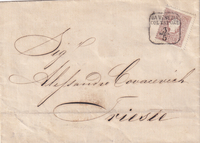 Sig.r
Alessandro Covacevich
Trieste